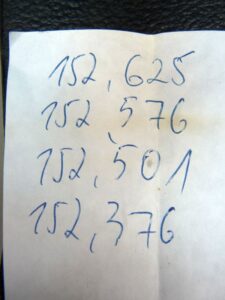 152,625
152,576
152,501
152,376